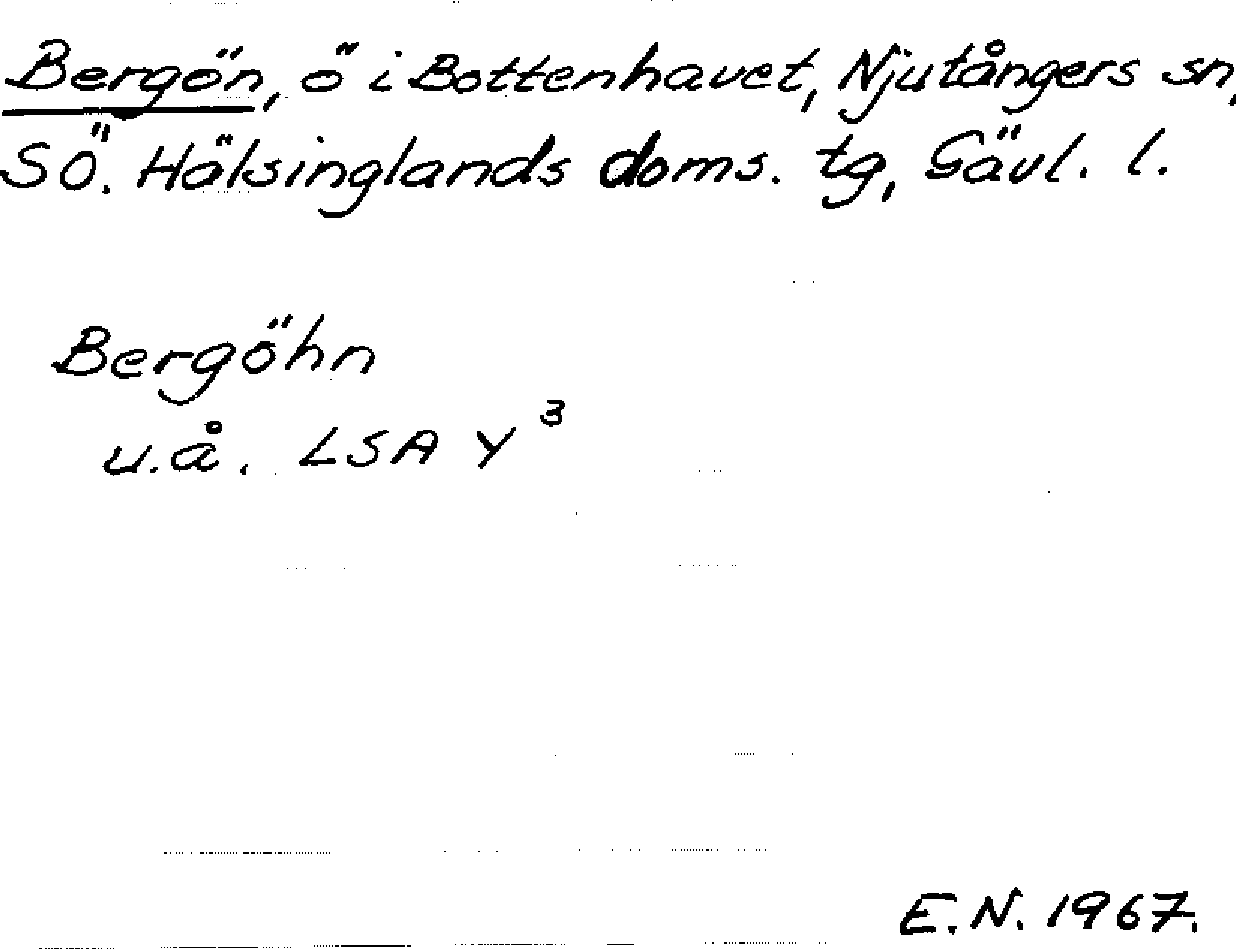 Bergön, ö i Bottenhavet, Njutångers sn,
SÖ. Hälsinglands doms. tg, Gävl. l.
Bergöhn
u.å. LSA Y³
E.N. 1967.